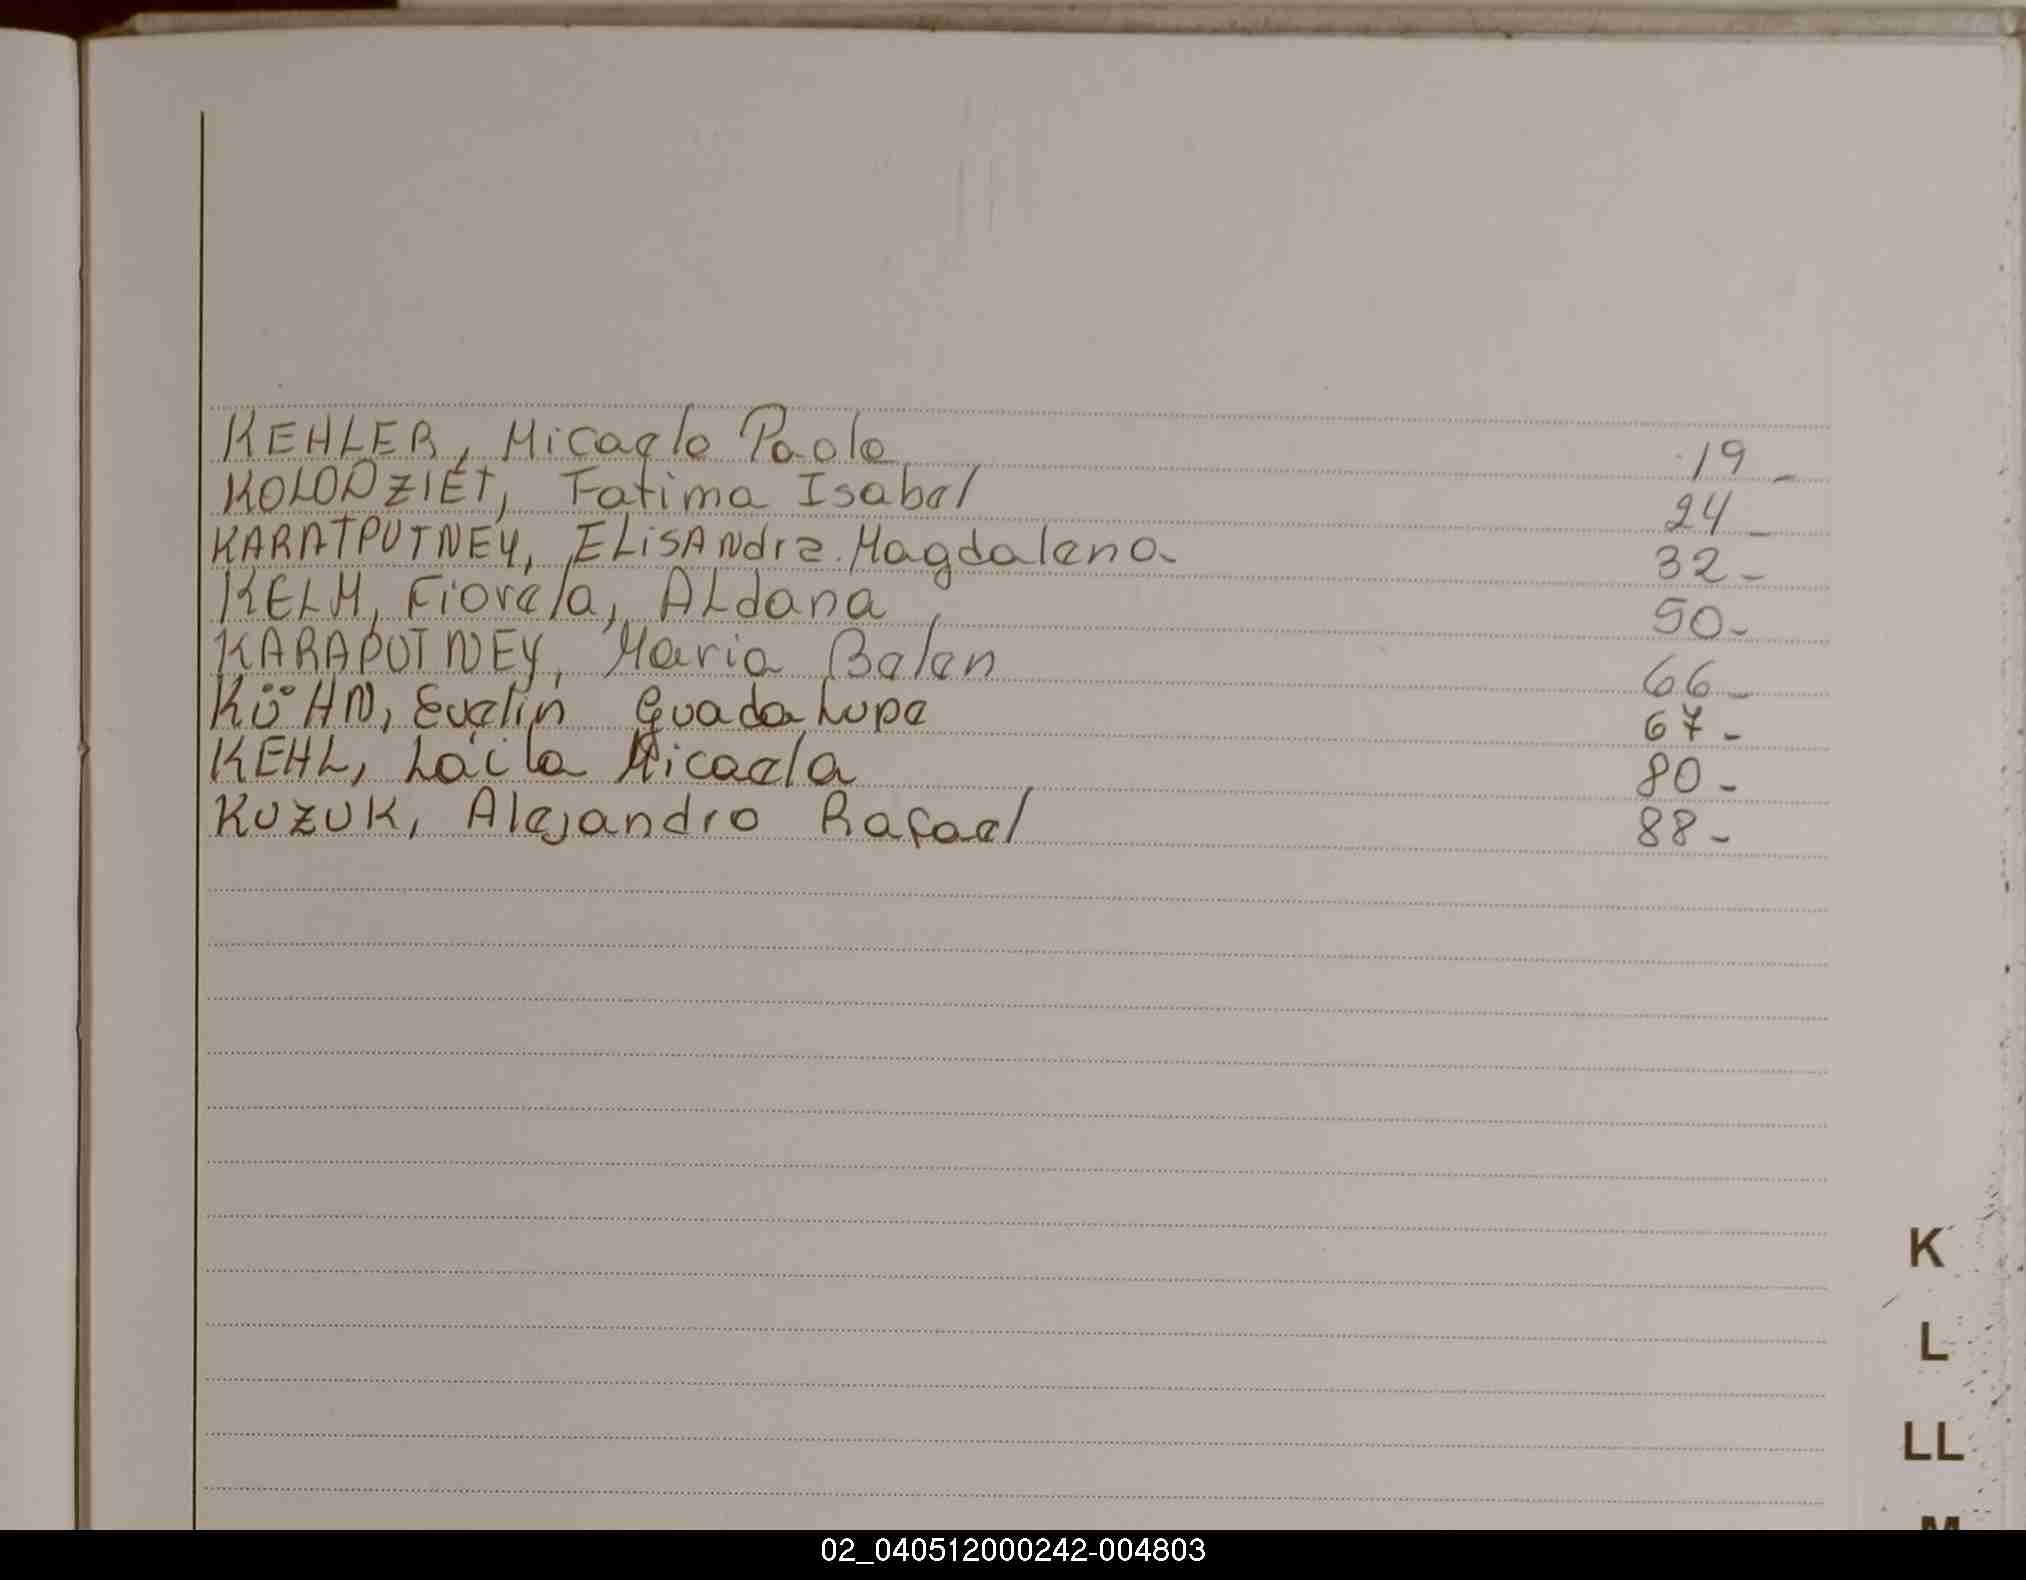 KEHLER, Micaela Paola 19-
KOLODZIEJ, Fatima Isabel 24-
KARATPUTNEY, ELiSANdra Magdalena 32-
KELM, Fiorela, ALdana 50-
KARAPUTNEY, Maria Belen 66-
KüHN, Evelin Guadalupe 67-
KEHL, Laila Micaela 80-
KUZUK, Alejandro Rafael 88-
K
L
LL
M
02_040512000242-004803